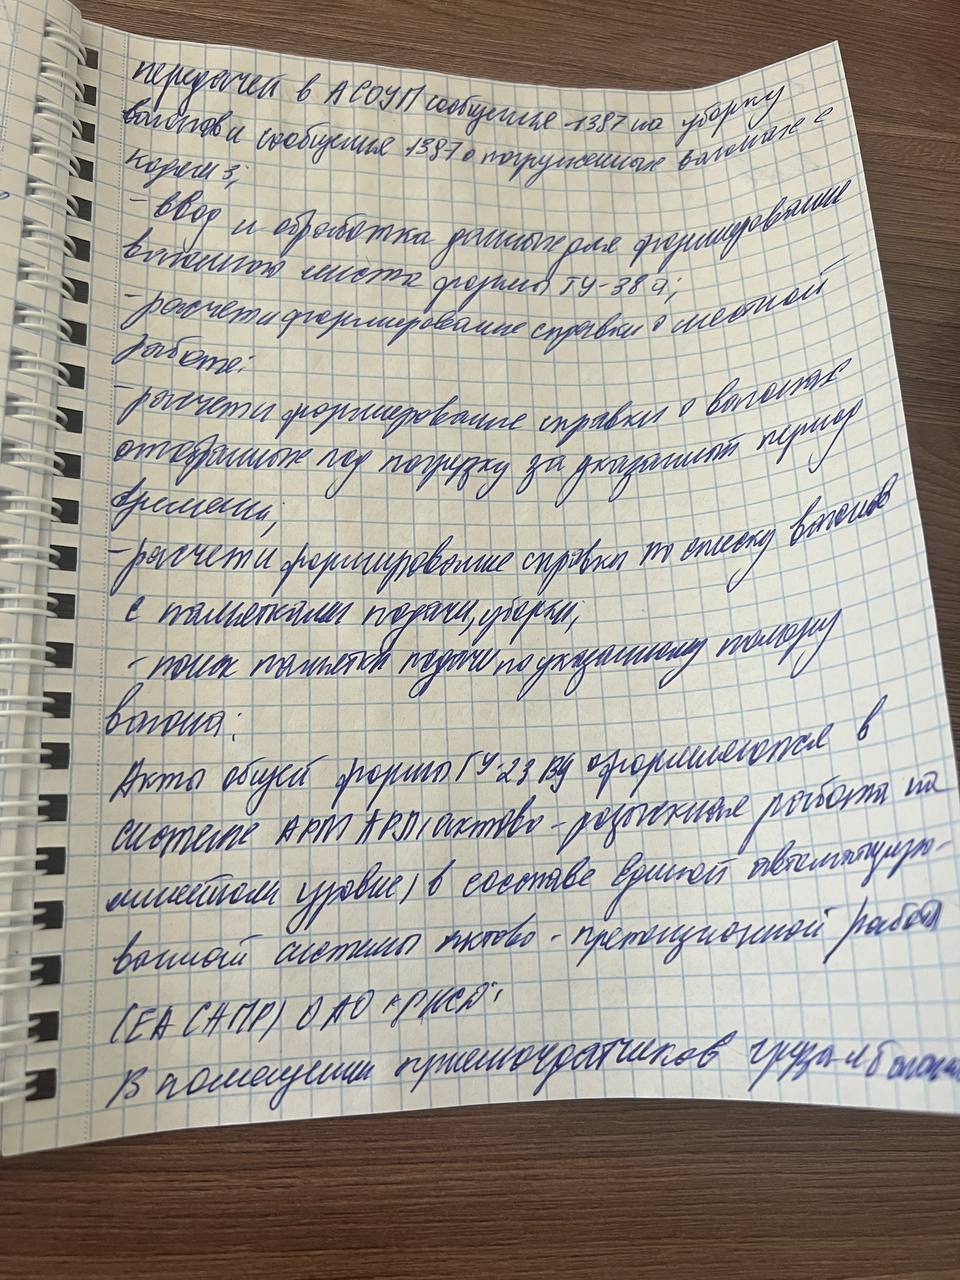 передачей в АСОУП сообщения 1387 на уборку
вагонов и сообщения 1387 о погруженных вагонах с
кодом 3;
- ввод и обработка данных для формирование
вагонного листа формы ГУ-38 а;
- расчет и формирование справки о местной
работе;
- расчет и формирование справки о вагонах
отобранных под погрузку за указанный период
времени;
- расчет и формирование справки по списку вагонов
с памятками подачи, уборки;
- поиск памятки подачи по указанному номеру
вагона;
Акты общей формы ГУ-23 ВЦ оформляются в
системе АРМ АРЛ (актово-розыскная работа на
линейном уровне) в составе Единой автоматизиро-
ванной системы актово-претензионной работы
(ЕА САПР) ОАО «РЖД».
В помещении приемосдатчиков груза и багажа